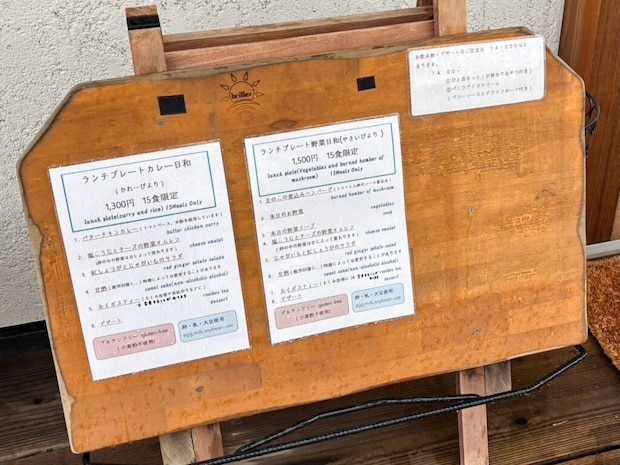 brilliez
お飲み物・デザートのご注文は 14:00から
となります。
14:00〜
ランチプレートカレー日和
(かれーびより)
1,300円 15食限定
lunch plate(curry and rice) 15Meals Only
1. バターチキンカレー
butter chicken curry
2. 塩こうじとチーズの野菜オムレツ
cheese omelet
3. 紅しょうがとじゃがいものサラダ
red ginger potato salada
4. 甘酒
sweet sake(non-alcoholic alcohol)
5. ルイボスティー
rooibos tea
6. デザート
dessert
グルテンフリー gluten-free
(小麦粉不使用)
卵・乳・大豆使用
egg,milk,soybean use
ランチプレート野菜日和(やさいびより)
1,500円 15食限定
lunch plate(Vegetables and burned hamber of
mushroom) 15Meals Only
1. きのこの煮込みハンバーグ
burned hamber of mushroom
2. 本日のお野菜
vegetables
3. 本日の野菜スープ
soup
4. 塩こうじとチーズの野菜オムレツ
cheese omelet
5. じゃがいもと紅しょうがのサラダ
red ginger potato salada
6. 甘酒
sweet sake(non-alcoholic alcohol)
7. ルイボスティー
rooibos tea
8. デザート
dessert
グルテンフリー gluten-free
(小麦粉不使用)
卵・乳・大豆使用
egg,milk,soybean use